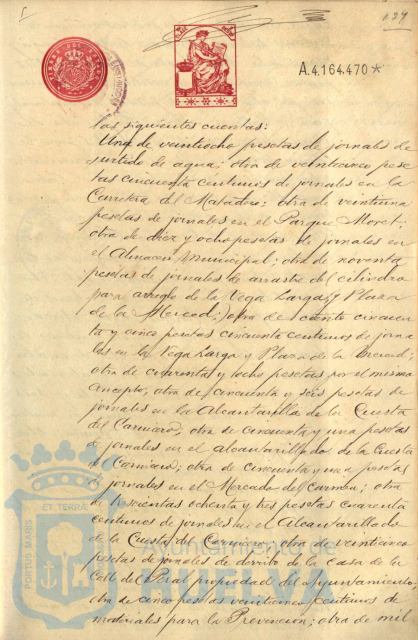 127
A.4.164.470*
las siguientes cuentas:
Una de veintiocho pesetas de jornales de
surtido de agua; otra de veinticinco pese
tas cincuenta centimos de jornales en la
Carretera del Matadero; otra de veintiuna
pesetas de jornales en el Parque Moret;
otra de diez y ocho pesetas de jornales en
el Almacen municipal; otra de noventa
pesetas de jornales de arrastre del cilindro
para arreglo de la Vega Larga y Plaza
de la Merced; otra de ciento cincuen
ta y cinco pesetas cincuenta centimos de jorna
les en la Vega Larga y Plaza de la Merced;
otra de cuarenta y ocho pesetas por el mismo
concepto; otra de cincuenta y seis pesetas de
jornales en la Alcantarilla de la Cuesta
del Carnicero; otra de cincuenta y una pesetas
de jornales en el alcantarillado de la Cuesta
del Carnicero; otra de cincuenta y una pesetas
de jornales en el Mercado del Carmen; otra
de trescientas ochenta y tres pesetas cuarenta
centimos de jornales en el Alcantarillado
de la Cuesta del Carnicero; otra de veinticinco
pesetas de jornales de derribo de la casa de la
Calle del Peral propiedad del Ayuntamiento;
otra de cinco pesetas veinticinco centimos de
materiales para la Prevencion; otra de mil
PORTUS MARIS
ET TERRAE
Ayuntamiento de
HUELVA